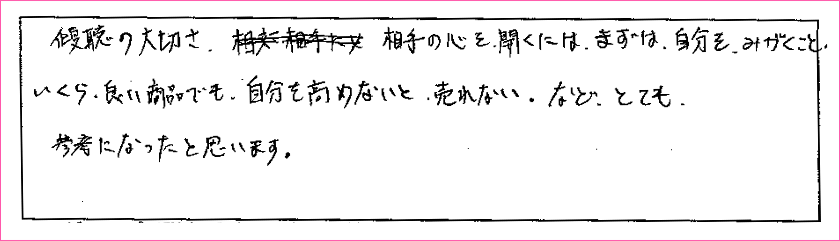 傾聴の大切さ、相手の心を開くには、まずは、自分を、みがくこと、
いくら、良い商品でも、自分を高めないと、売れない。など、とても、
参考になったと思います。